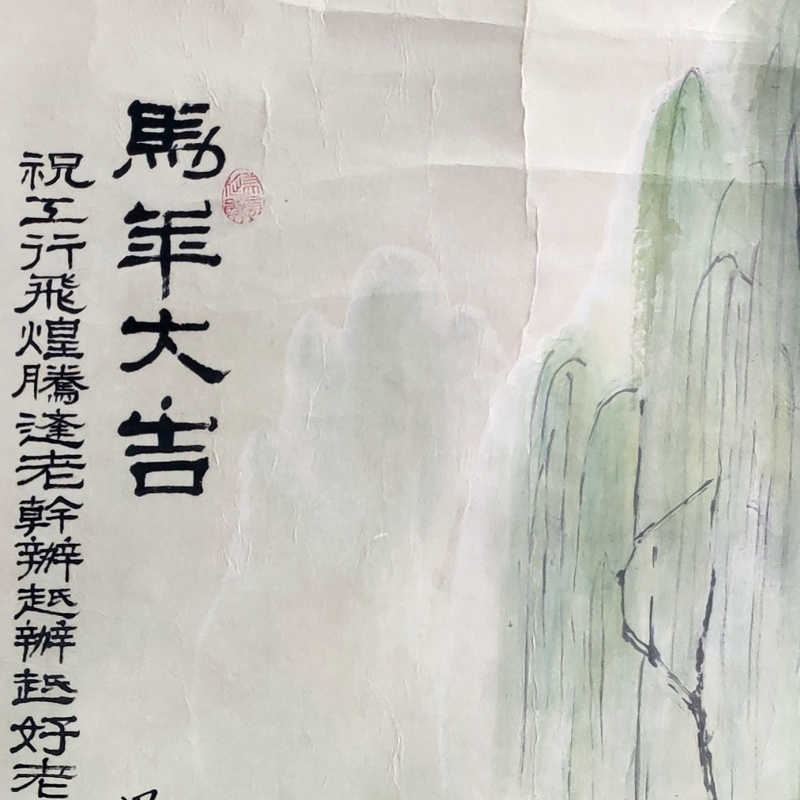 馬年大吉
祝工行飛煌騰達老幹辦越辦越好老